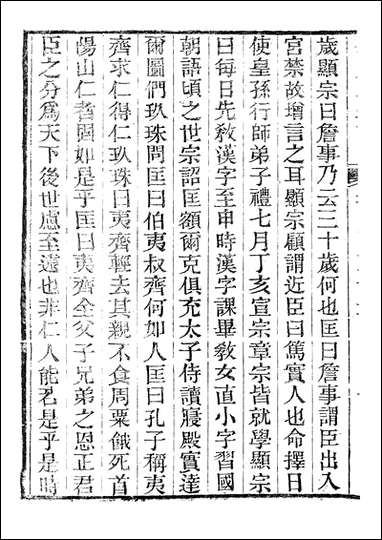 歲顯宗曰詹事乃云三十歲何也匡曰詹事謂臣出入
宮禁故增言之耳顯宗顧謂近臣曰篤實人也命擇日
使皇孫行師弟子禮七月丁亥宣宗章宗皆就學顯宗
曰每日先敎漢字至申時漢字課畢敎女直小字習國
朝語頃之世宗詔匡額爾克俱充太子侍讀寢殿實達
爾圖們玖珠問匡曰伯夷叔齊何如人匡曰孔子稱夷
齊求仁得仁玖珠曰夷齊輕去其親不食周粟餓死首
陽山仁者固如是乎匡曰夷齊全父子兄弟之恩正君
臣之分爲天下後世慮至遠也非仁人能若是乎是時